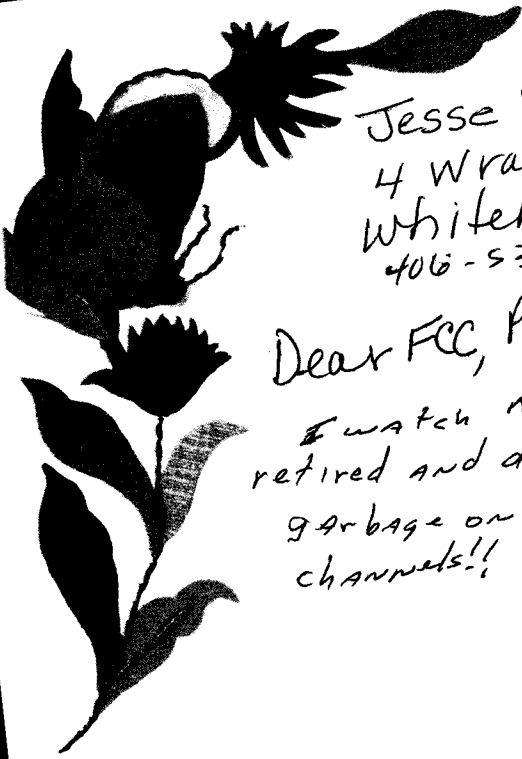 Jesse
4 Wra
White
406-53
Dear FCC,
I watch
retired and a
garbage on
channels!!